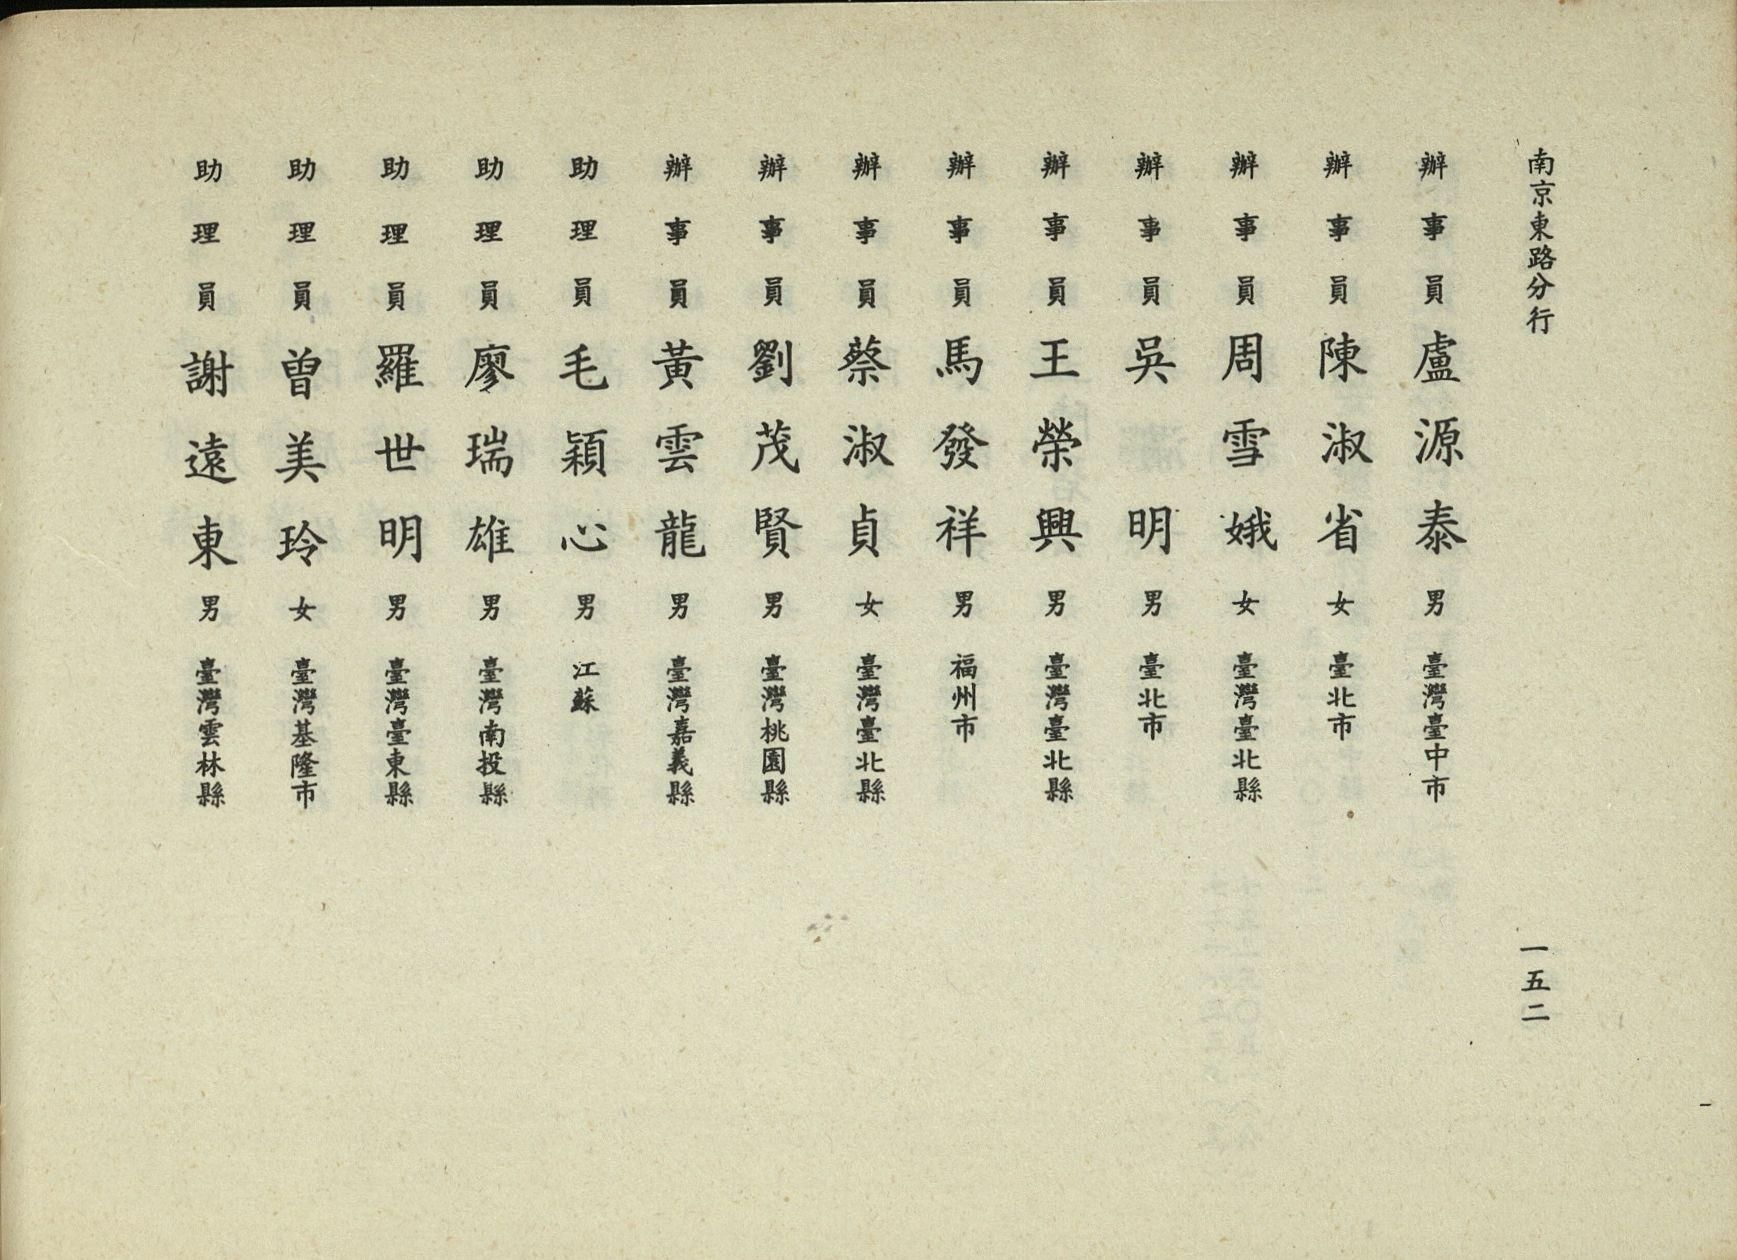 南京東路分行
一五二
辦事員 盧源泰 男 臺灣臺中市
辦事員 陳淑省 女 臺北市
辦事員 周雪娥 女 臺灣臺北縣
辦事員 吳明 男 臺北市
辦事員 王榮興 男 臺灣臺北縣
辦事員 馬發祥 男 福州市
辦事員 蔡淑貞 女 臺灣臺北縣
辦事員 劉茂賢 男 臺灣桃園縣
辦事員 黃雲龍 男 臺灣嘉義縣
助理員 毛穎心 男 江蘇
助理員 廖瑞雄 男 臺灣南投縣
助理員 羅世明 男 臺灣臺東縣
助理員 曾美玲 女 臺灣基隆市
助理員 謝遠東 男 臺灣雲林縣